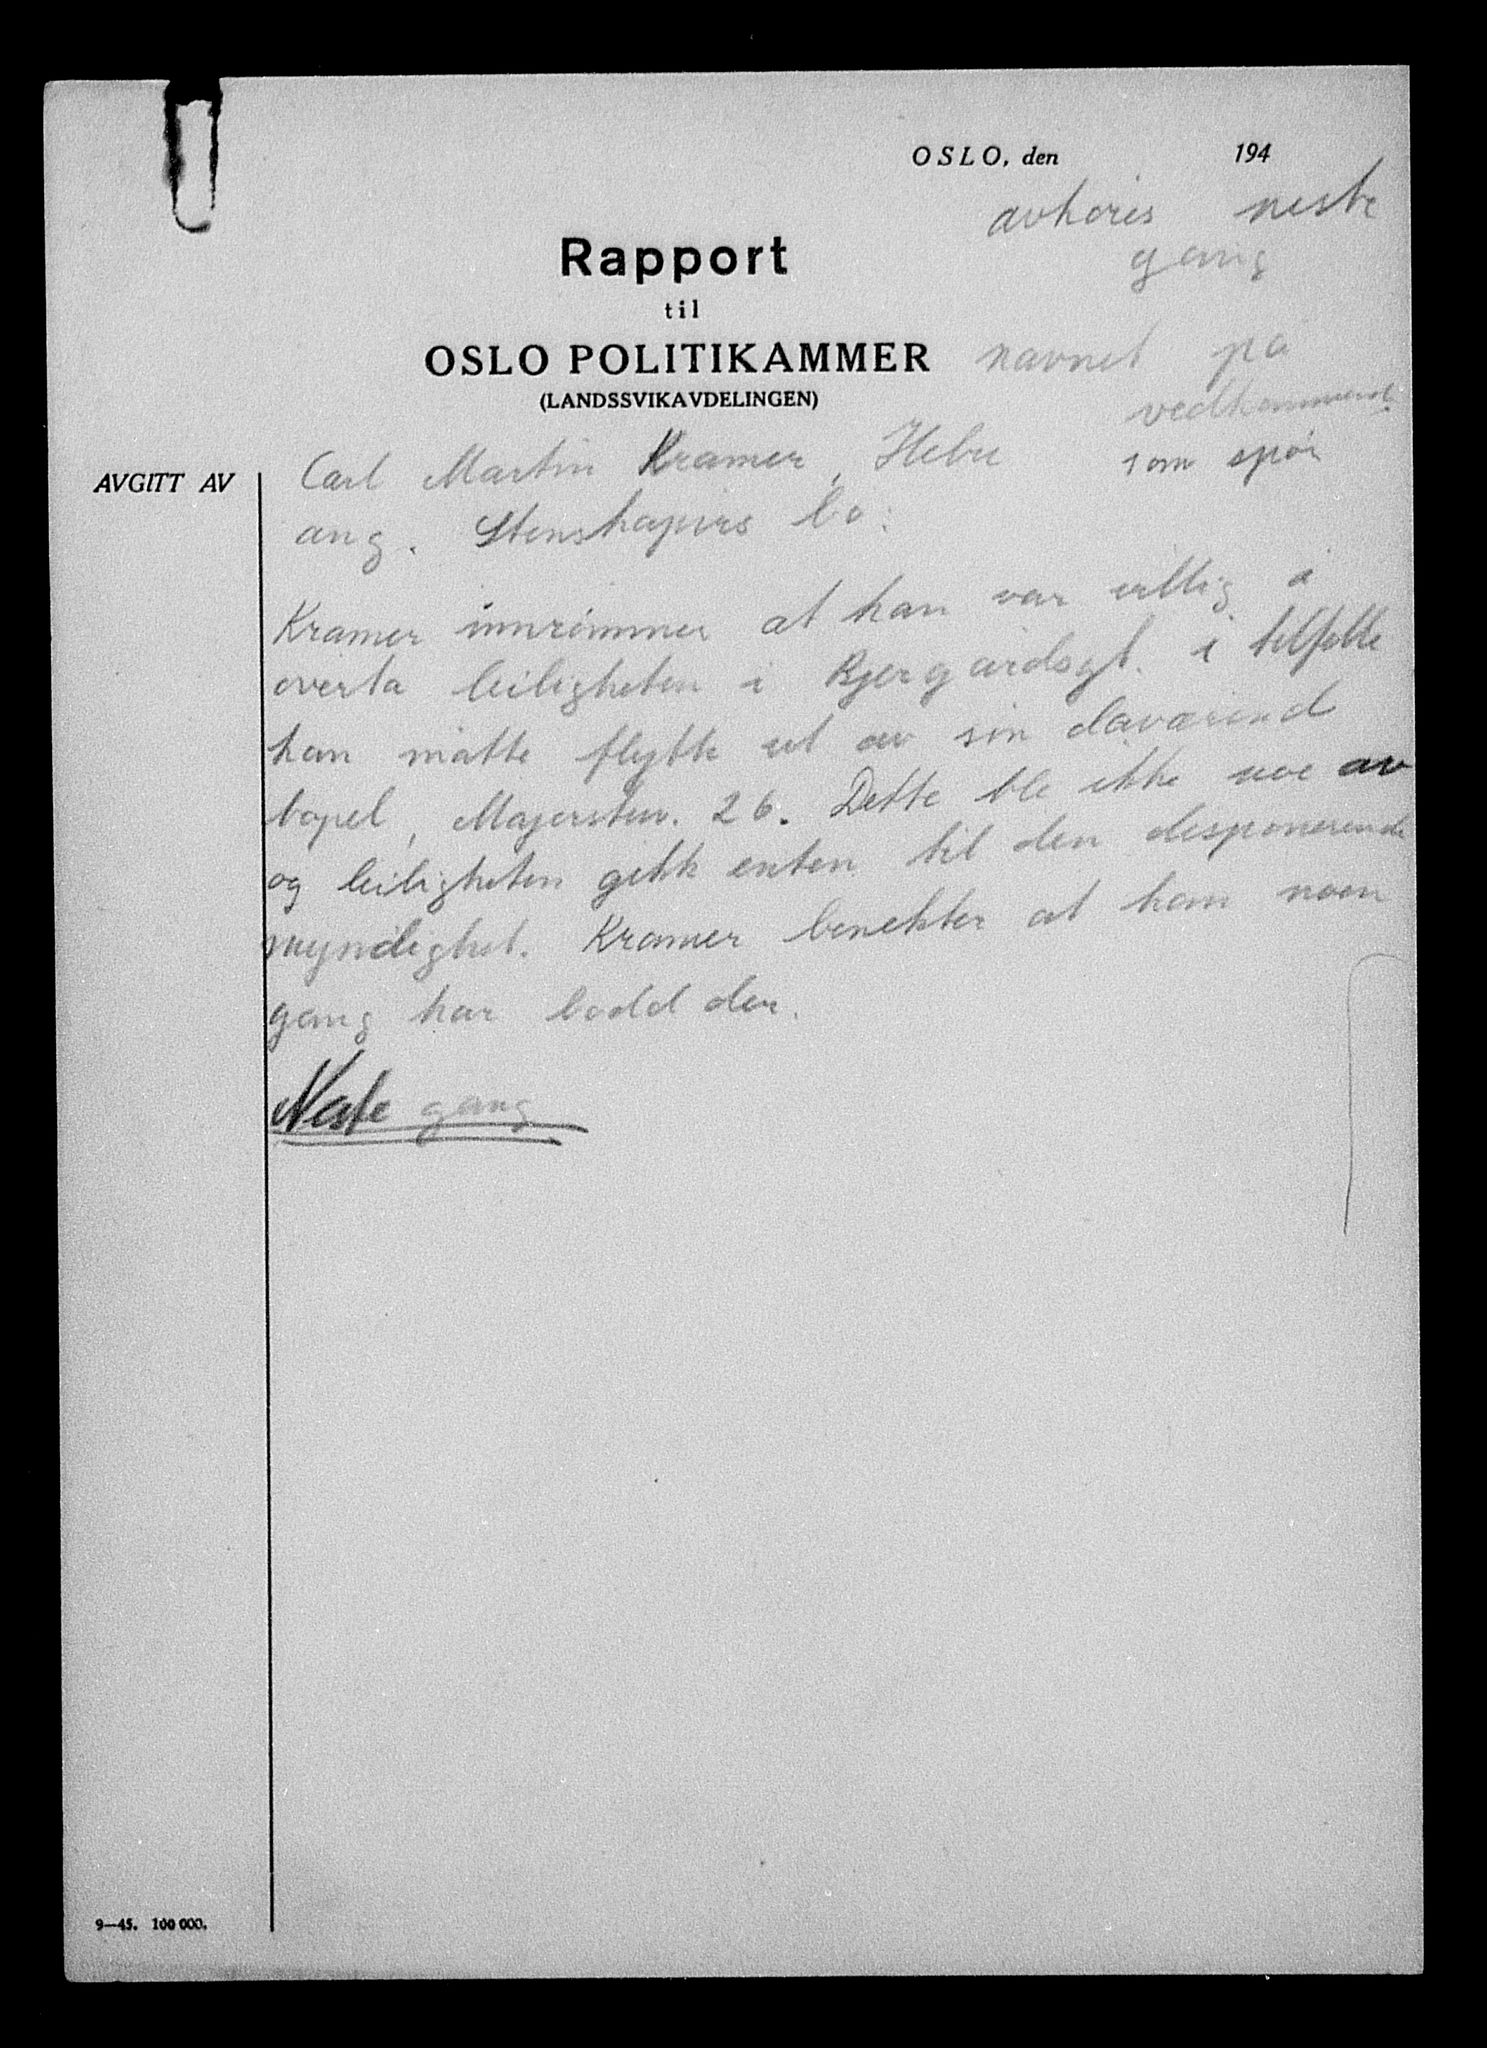 OSLO, den 194
avhøres neste
gang
Rapport
til
OSLO POLITIKAMMER
(LANDSSVIKAVDELINGEN)
navnet på
vedkommende
som spør
AVGITT AV
Carl Martin Kramer,
ang. Stenshapirs bo:
Kramer innrømmer at han var villig å
overta leiligheten i Bjergårdsgt. i tilfelle
han måtte flytte ut av sin daværend
bopel, Majorstuv. 26. Dette ble ikke noe av
og leiligheten gikk enten til den disponerende
myndighet. Kramer benekter at han noen
gang har bodd der.
Neste gang
9—45. 100 000.